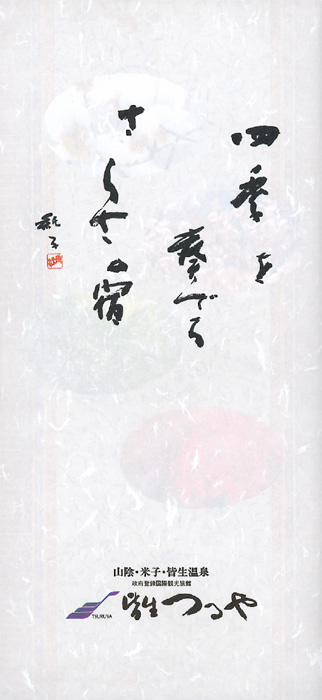 四季を
奏でる
さらさの宿
山陰・米子・皆生温泉
政府登録国際観光旅館
TSURUYA
皆生つるや